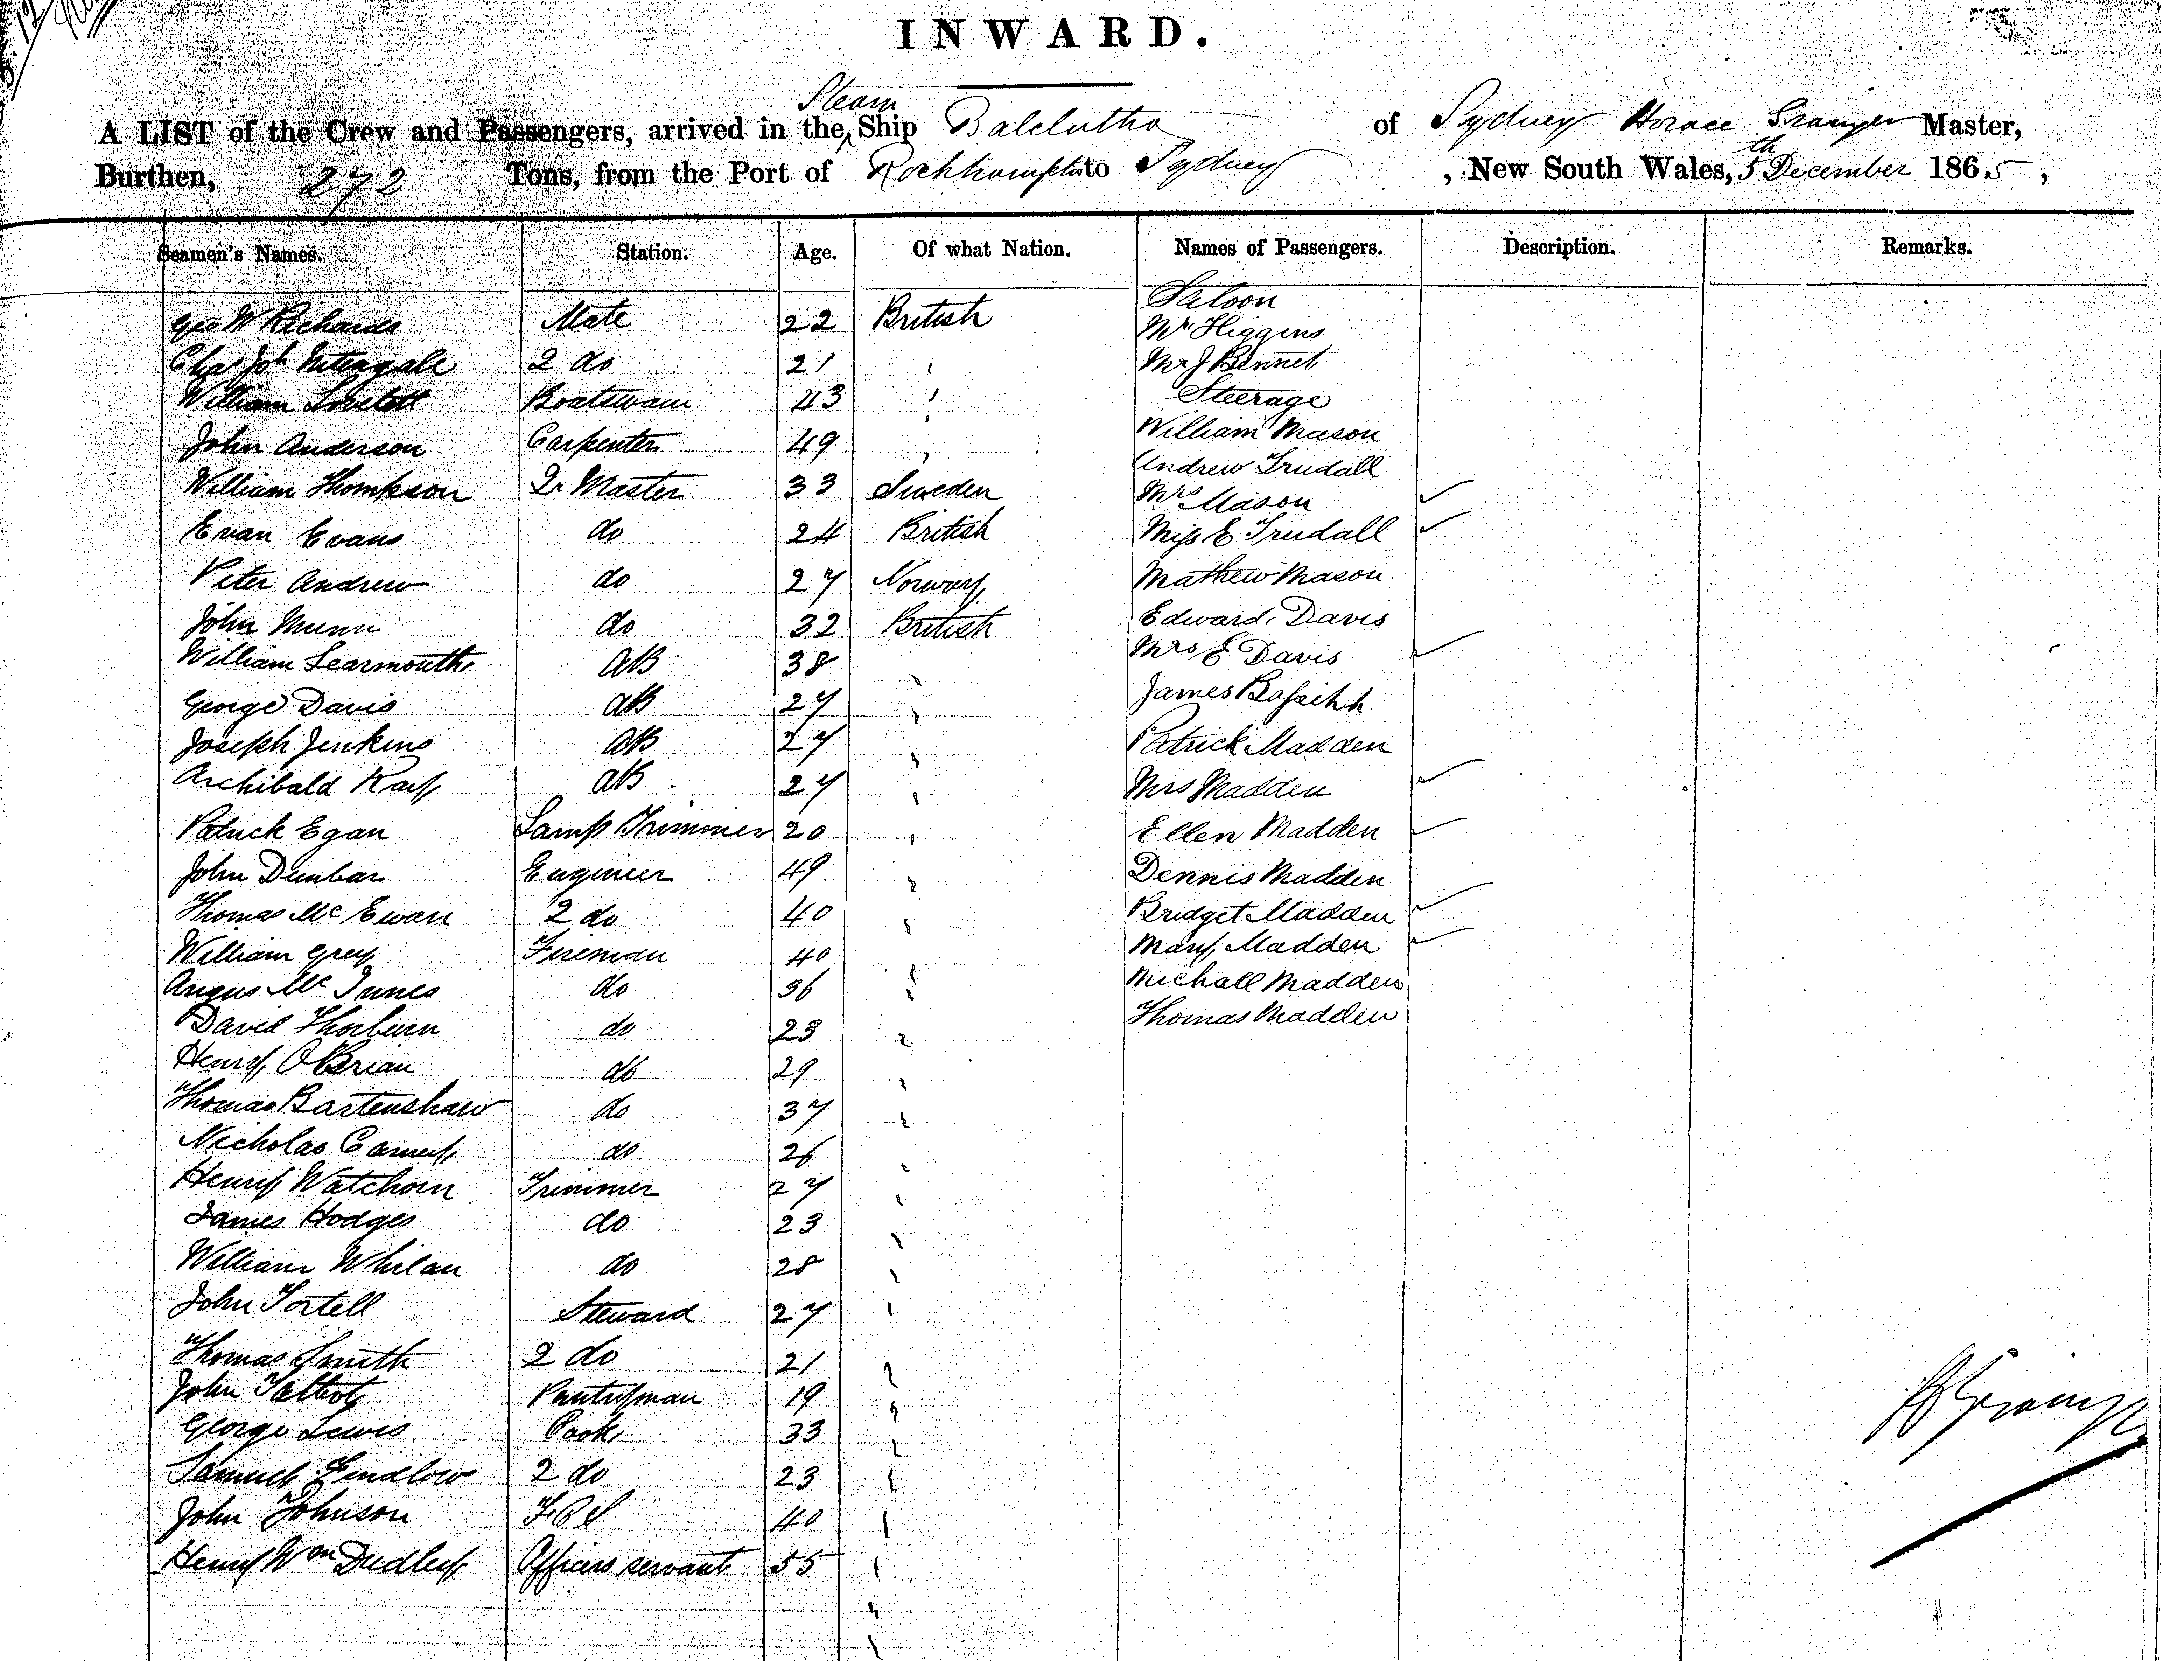 INWARD.
Steam
A LIST of the Crew and Passengers, arrived in the Ship Balclutha of Sydney Horace Master,
Burthen, 272 Tons, from the Port of Rockhampton to Sydney, New South Wales, 5th December 1865,
Seamen's Names. Station. Age. Of what Nation. Names of Passengers. Description. Remarks.
Saloon
Geo W Richards Mate 22 British Mr Higgins
2 do 21 Mr J Bennet
William Boatswain 43 Steerage
John Anderson Carpenter 49 William Mason
Andrew Trudall
William Thompson Qr Master 33 Sweden Mrs Mason
Evan Evans do 24 British Miss E Trudall
Peter Andrew do 27 Norway Mathew Mason
John Munn do 32 British Edward Davis
William Learmouth AB 38 Mrs E Davis
George Davis AB 27 James
Joseph Jenkins AB 27 Patrick Madden
Archibald Kay AB 27 Mrs Madden
Patrick Egan Lamp Trimmer 20 Ellen Madden
John Dunbar Engineer 49 Dennis Madden
Thomas Mc Ewan 2 do 40 Bridget Madden
William Grey Fireman 40 Mary Madden
Angus Mc Innes do 36 Michall Madden
David Thorburn do 23 Thomas Madden
Henry O'Brian do 29
Thomas Bartenshaw do 37
Nicholas do 26
Henry Watchorn Trimmer 27
James Hodges do 23
William Whilan do 28
John Tortell Steward 27
Thomas Smith 2 do 21
John Talbot Pantryman 19
George Lewis Cook 33
Samuel Findlow 2 do 23
John Johnson 40
Henry Wm Dudley Officers servant 55